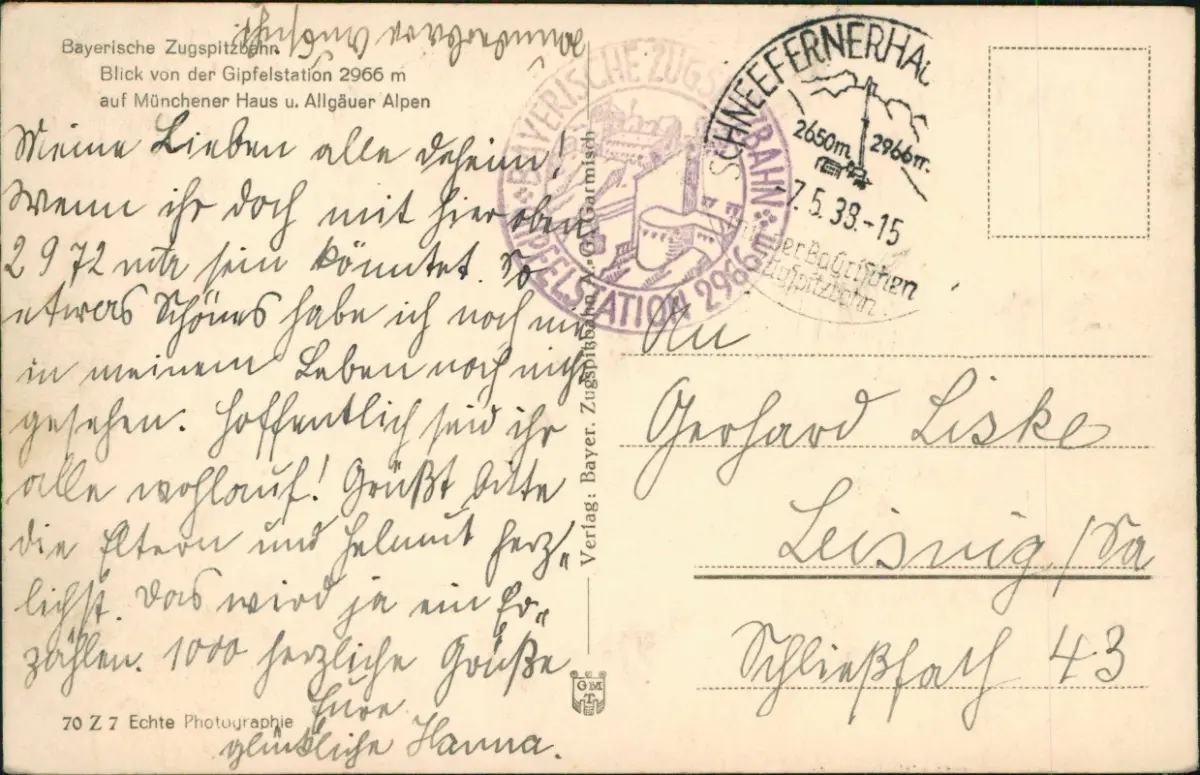 Bayerische Zugspitzbahn.
Blick von der Gipfelstation 2966 m
auf Münchener Haus u. Allgäuer Alpen
Meine Lieben alle daheim!
Wenn ihr doch mit hier oben
2972 mtr sein könntet. So
etwas Schönes habe ich noch nie
in meinem Leben noch nicht
gesehen. Hoffentlich seid ihr
alle wohlauf! Grüßt bitte
die Eltern und Helmut herz-
lichst. Das wird ja ein Er-
zählen. 1000 herzliche Grüße
Eure
glückliche Hanna.
wunderbare Aussicht
70 Z 7 Echte Photographie
Verlag: Bayer. Zugspitzbahn A.-G. Garmisch
GMT
BAYERISCHE ZUGSPITZBAHN
GIPFELSTATION 2966m
SCHNEEFERNERHAU
2650m 2966m
7.5.38.-15
der Bayrischen
Zugspitzbahn
An
Gerhard Liske
Leisnig /Sa
Schließfach 43